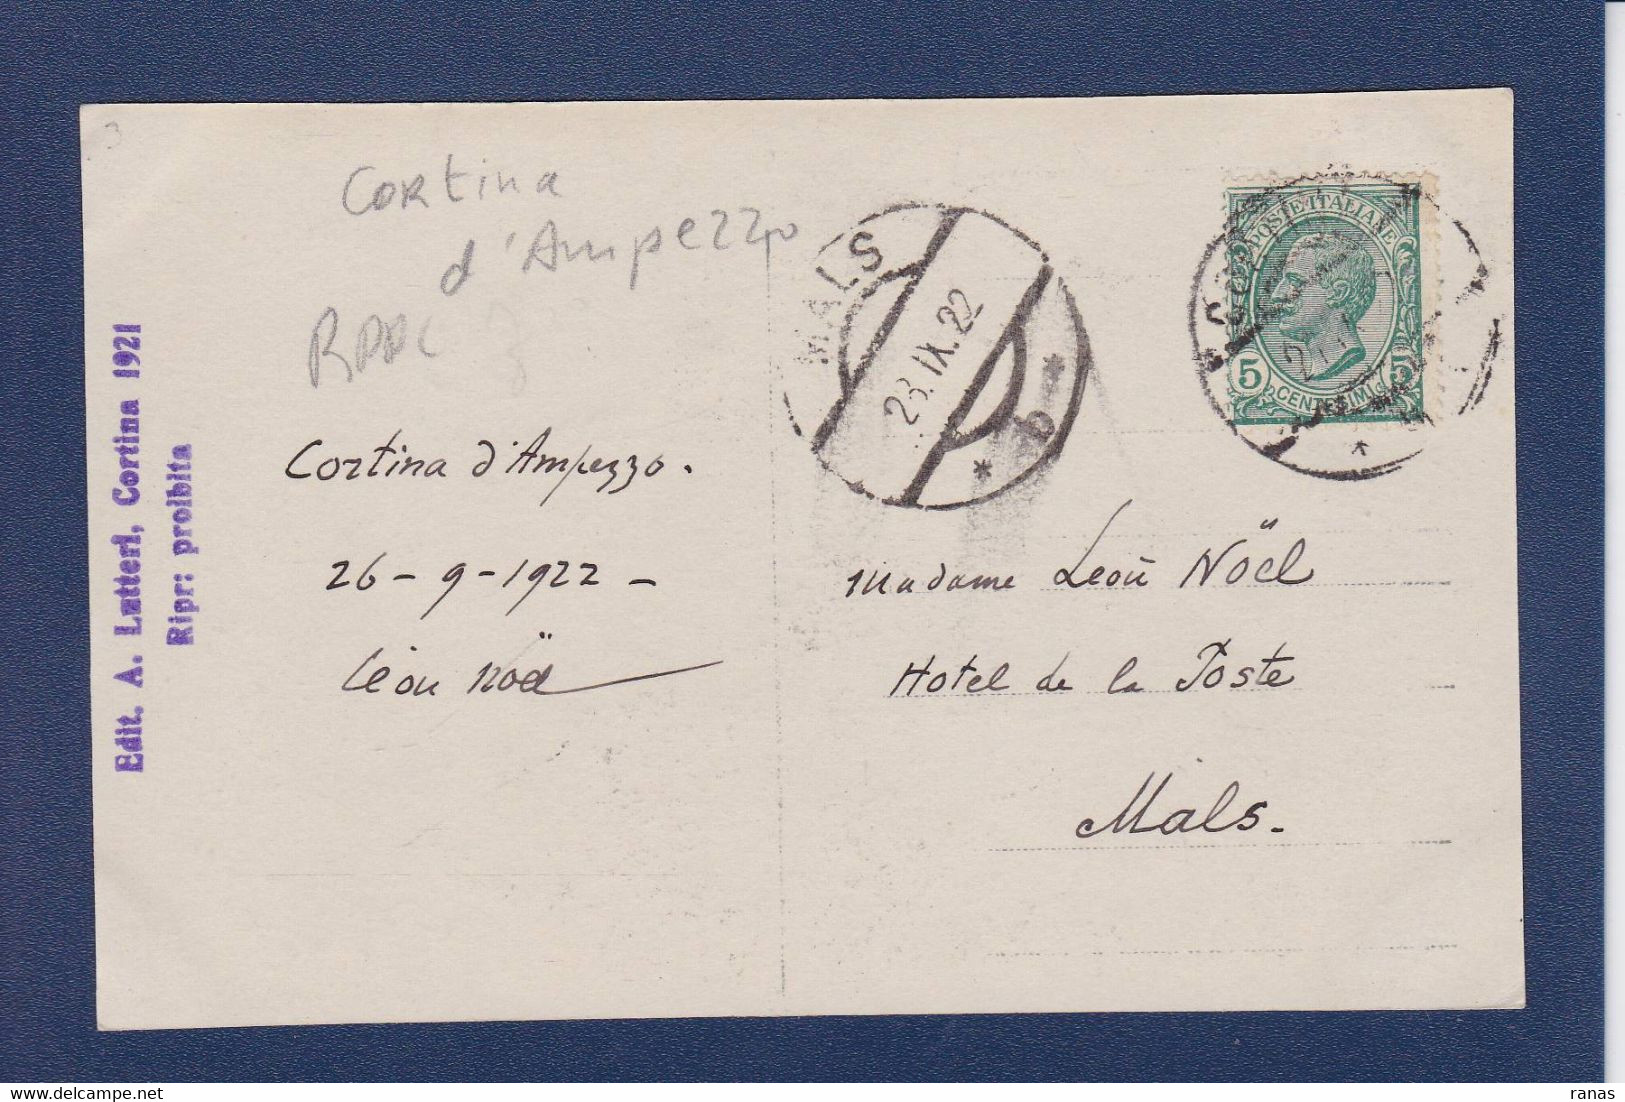 Cortina
d'Ampezzo
Edit. A. Lutteri, Cortina 1921
Ripr: proibita
MALS
28.IX.22
b
POSTE ITALIANE
5 5
CENTESIMI
Cortina d'Ampezzo.
26-9-1922-
Léon Noël
Madame Léon Nöel
Hotel de la Poste
Mals.
ranas